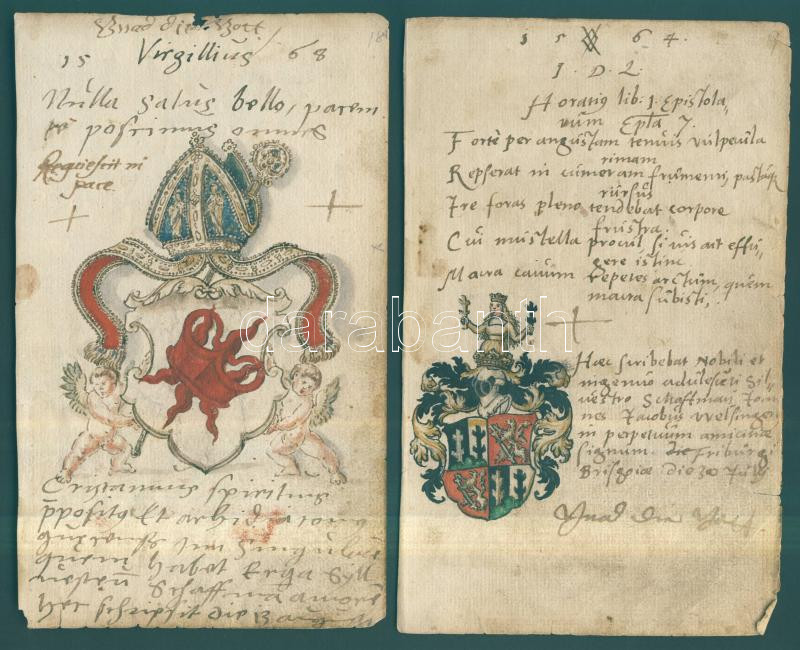 Gnad dir Gott
15 Virgillius 68
Nulla Salus bello, pacem
te poscimus omnes
Requiescit in
pace
Cristannus spiritus
habet Erga Syl
Schaffma amore
hec schripsit die
1 5 6 4.
I. D. L.
Horatius lib: 1. Epistola-
rum Epla 7.
Forte per angustam tenuis vulpecula
rimam
Repserat in cumeram frumenti, pastaque
rursus
Ire foras pleno tendebat corpore
frustra:
Cui mustella procul si vis ait effu-
gere istinc
Macra cavum repetes arctum, quem
macra subisti,
Haec scribebat Nobili et
ingenuo adulescenti Sil-
vestro Schaffman Joan-
nes Jacobus Welsinger
in perpetuum amicitiae
signum. Friburgi
Brisgoiae. die 30 July
Gnad dir Gott
darabanth